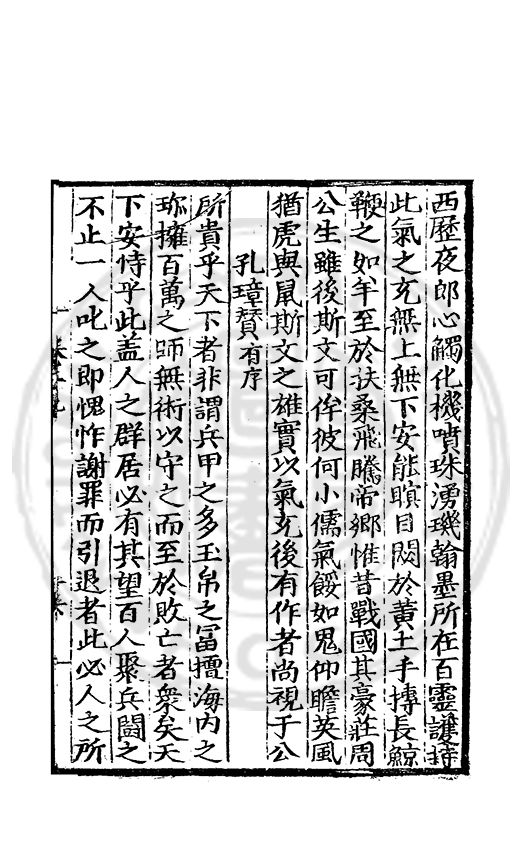 西歷夜郎心觸化機噴珠湧璣翰墨所在百靈護持
此氣之充無上無下安能瞑目閟於黃土手摶長鯨
鞭之如羊至於扶桑飛騰帝鄉惟昔戰國其豪莊周
公生雖後斯文可侔彼何小儒氣餒如鬼仰瞻英風
猶虎與鼠斯文之雄實以氣充後有作者尚視于公
孔璋贊有序
所貴乎天下者非謂兵甲之多玉帛之富擅海內之
珎擁百萬之師無術以守之而至於敗亡者衆矣天
下安恃乎此盖人之群居必有其望百人聚兵鬪之
不止一人叱之即愧怍謝罪而引退者此必人之所